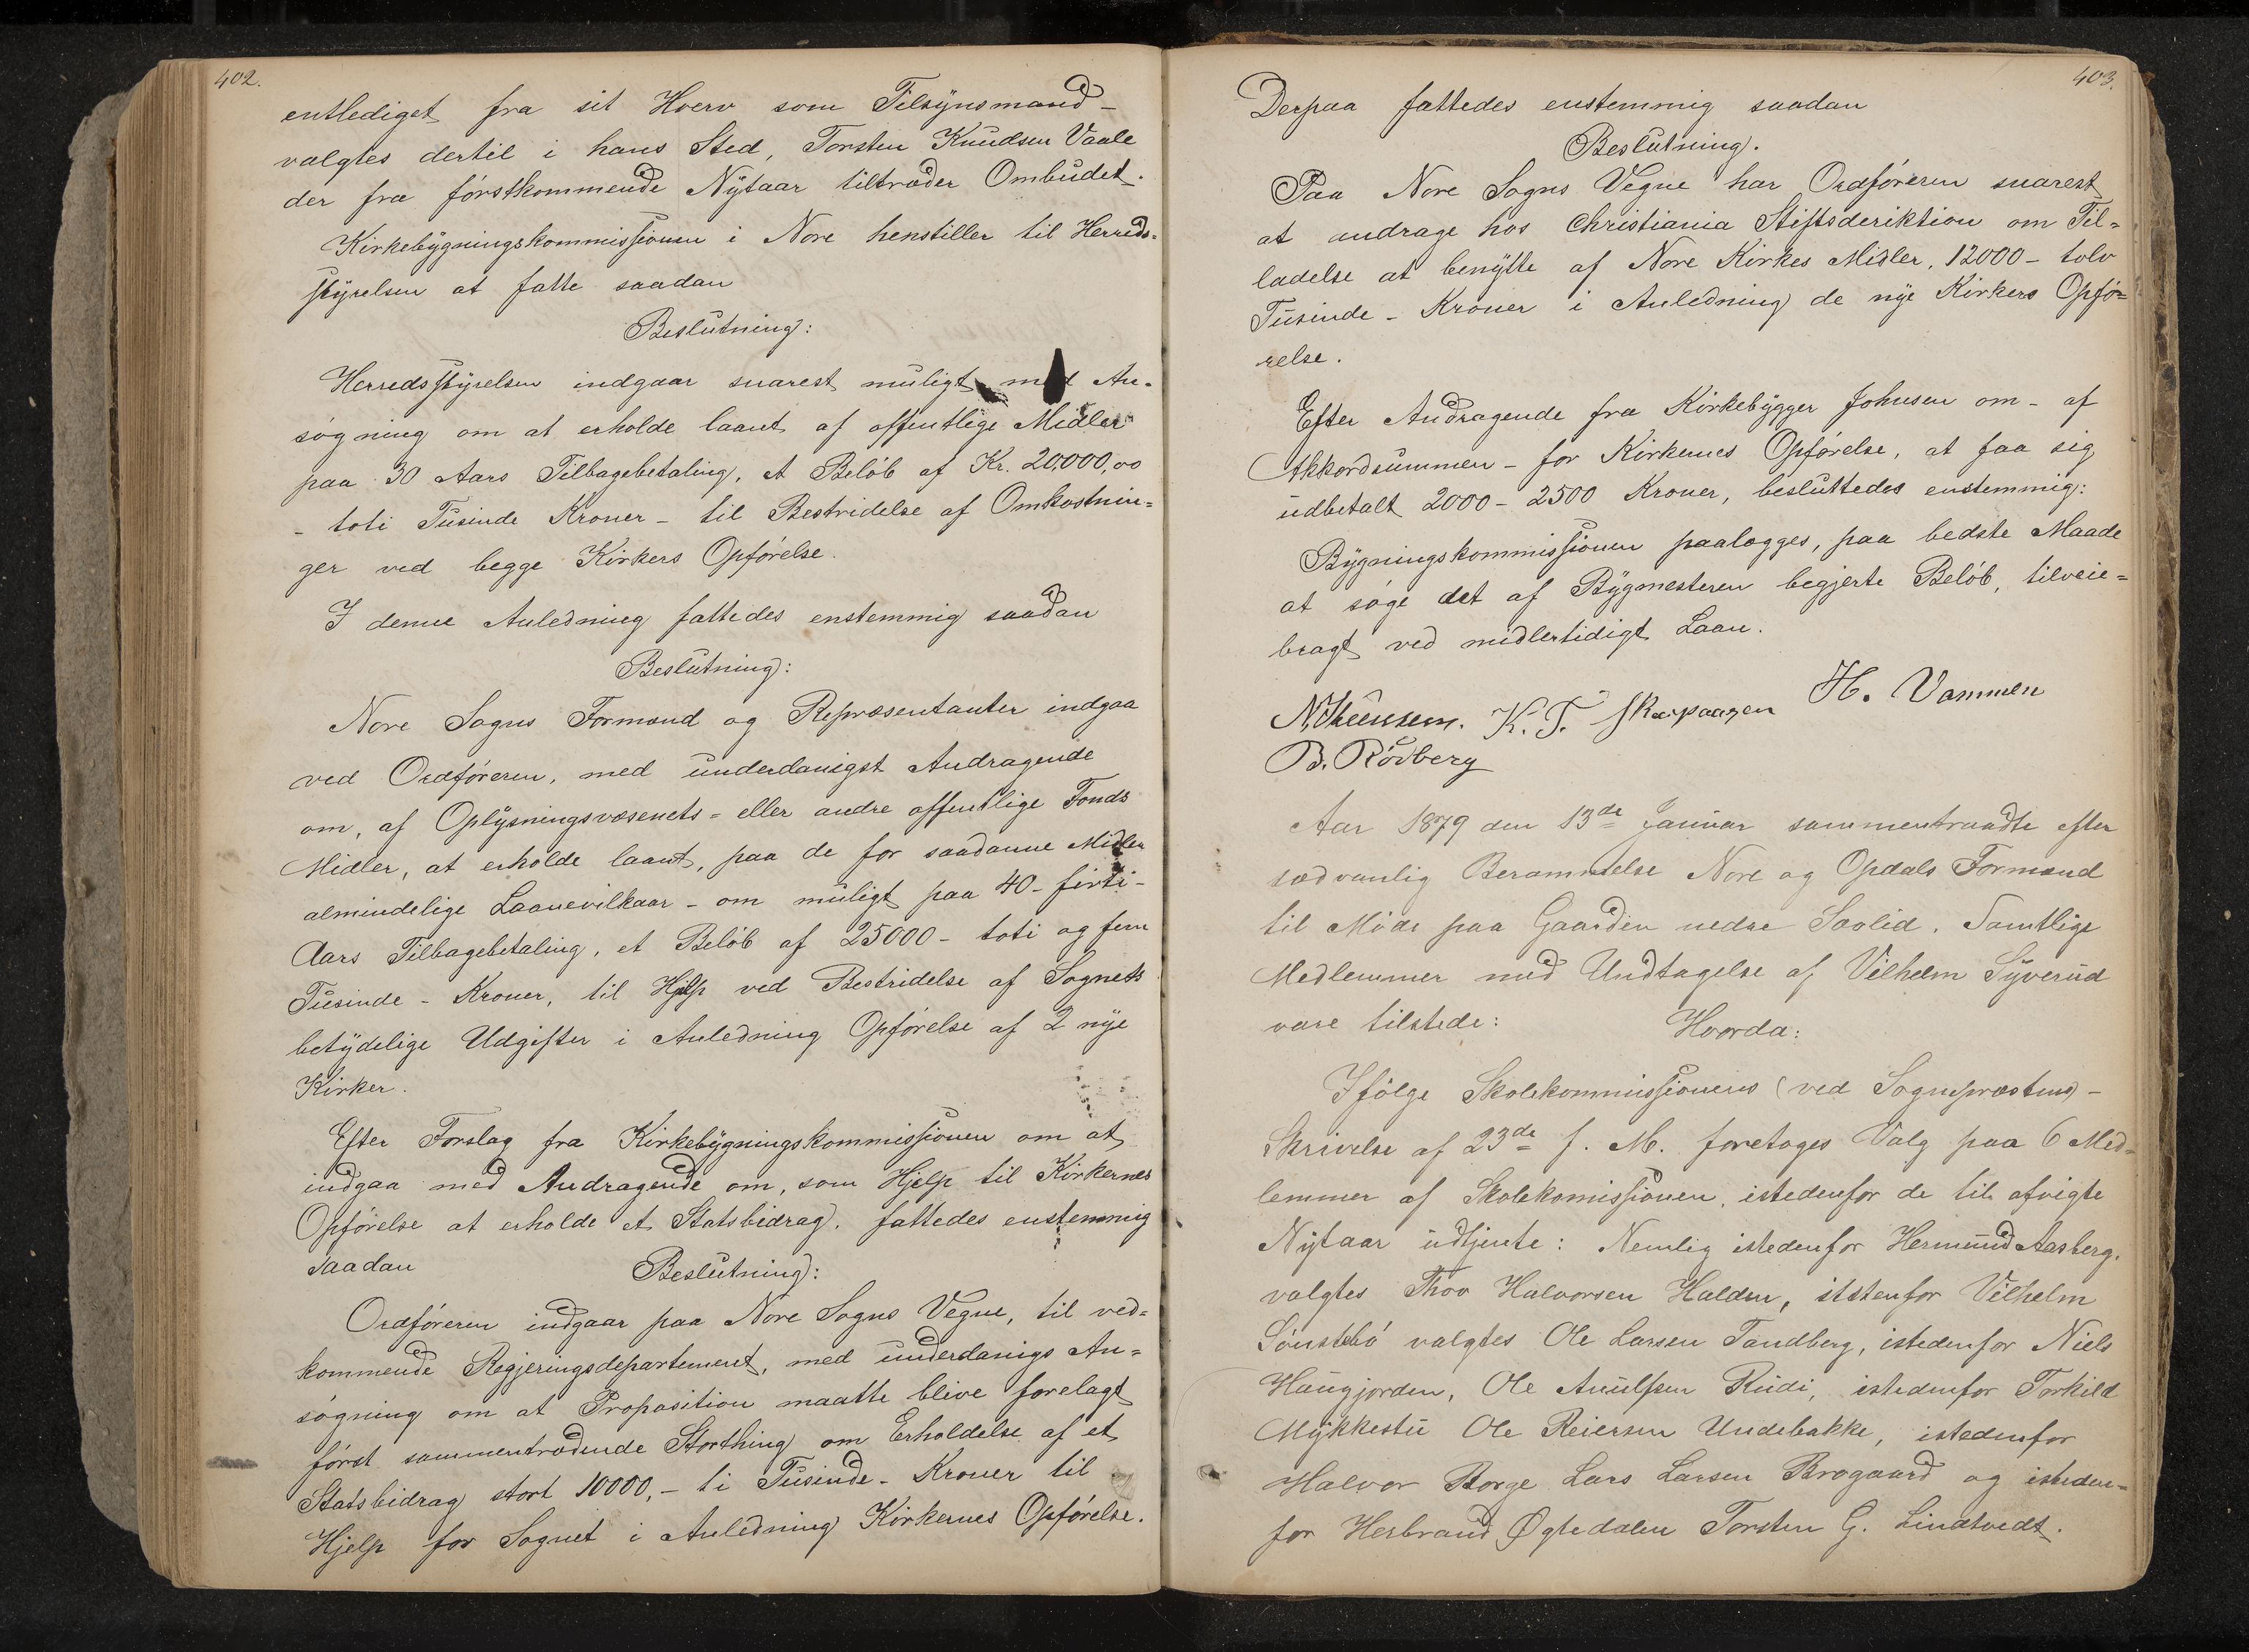 402.
entlediget fra sit Hverv som Tilsynsmand -
valgtes dertil i hans Sted, Torsten Knudsen Vaale
der fra førstkommende Nytaar tiltræder Ombudet.
Kirkebygningskommissionen i Nore henstiller til Herreds-
styrelsen at fatte saadan
Beslutning:
Herredsstyrelsen indgaar snarest muligt med An-
søgning om at erholde laant af offentlige Midler
paa 30 Aars Tilbagebetaling, et Beløb af Kr. 20,000,00
- toti Tusinde Kroner - til Bestridelse af Omkostnin-
ger ved begge Kirkers Opførelse.
I denne Anledning fattedes enstemmig saadan
Beslutning:
Nore Sogns Formænd og Repræsentanter indgaa
ved Ordføreren, med underdanigst Andragende
om, af Oplysningsvæsenets- eller andre offentlige Fonds
Midler, at erholde laant, paa de for saadanne Midler
almindelige Laanevilkaar - om muligt paa 40 - firti -
Aars Tilbagebetaling, et Beløb af 25000 - toti og fem
Tusinde - Kroner, til Hjelp ved Bestridelse af Sognets
betydelige Udgifter i Anledning Opførelse af 2 nye
Kirker.
Efter Forslag fra Kirkebygningskommissionen om at
indgaa med Andragende om, som Hjelp til Kirkernes
Opførelse at erholde et Statsbidrag, fattedes enstemmig
saadan Beslutning:
Ordføreren indgaar paa Nore Sogns Vegne, til ved-
kommende Regjeringsdepartement, med underdanigs An-
søgning om at Proposition maatte blive forelagt
først sammentrædende Storthing om Erholdelse af et
Statsbidrag stort 10000,- ti Tusinde - Kroner til
Hjelp for Sognet i Anledning Kirkernes Opførelse.
403.
Derpaa fattedes enstemmig saadan
Beslutning.
Paa Nore Sogns Vegne har Ordføreren snarest
at andrage hos Christiania Stiftsderiktion om Til-
ladelse at benytte af Nore Kirkes Midler, 12000 - tolv
Tusinde - Kroner i Anledning de nye Kirkers Opfø-
relse.
Efter Andragende fra Kirkebygger Johnsen om - af
Akkordsummen - for Kirkernes Opførelse, at faa sig
udbetalt 2000 - 2500 Kroner, besluttedes enstemmig:
Bygningskommissionen paalægges, paa bedste Maade
at søge det af Bygmesteren begjerte Beløb, tilveie-
bragt ved midlertidigt Laan.
K. T. Skjøpaagen H. Vammen
B. Rødberg
Aar 1879 den 13de Januar sammentraadte efter
sædvanlig Berammelse Nore og Opdals Formænd
til Møde paa Gaarden nedre Sevlid. Samtlige
Medlemmer med Undtagelse af Vilhelm Syverud
vare tilstede: Hvorda:
Ifølge Skolekommissionens (ved Sognepræstens) -
Skrivelse af 23de f. M. foretages Valg paa 6 Med-
lemmer af Skolekomissionen, istedenfor de til afvigte
Nytaar udtjente: Nemlig istedenfor Hermund Aasberg.
valgtes Thov Halvorsen Halden, iststenfor Vilhelm
Sønstebø valgtes Ole Larsen Tandberg, istedenfor Niels
Haugjorden, Ole Anulfsen Rudi, istedenfor Torkild
Mykkestu Ole Reiersen Undebakke, istedenfor
Halvor Borge Lars Larsen Brøgaard og isteden-
for Herbrand Øgtedalen Torsten G. Lindtvedt.